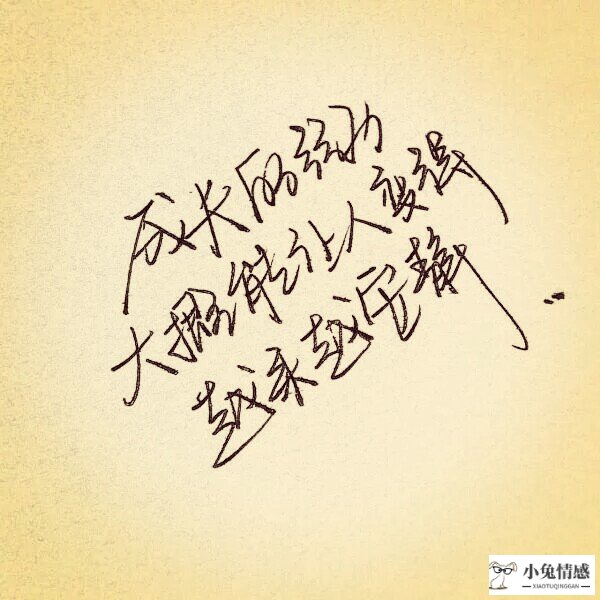 成长的经历
大概能让人变强
越来越安静
小兔情感
XIAOTUQINGGAN